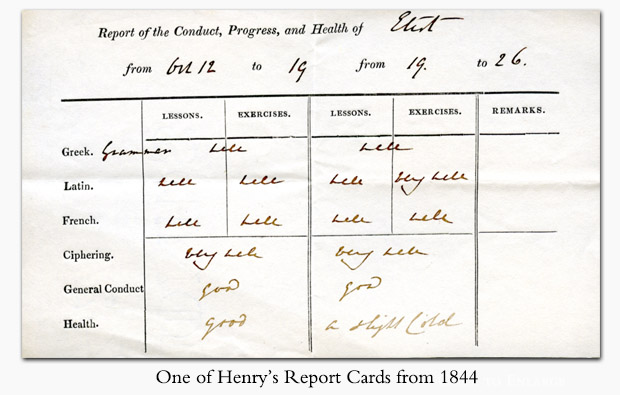 Report of the Conduct, Progress, and Health of Eliot
from Oct 12 to 19 from 19. to 26.
LESSONS. EXERCISES. LESSONS. EXERCISES. REMARKS.
Greek. Grammar well well
Latin. well well well very well
French. well well well well
Ciphering. very well very well
General Conduct good good
Health. good a slight Cold
One of Henry's Report Cards from 1844